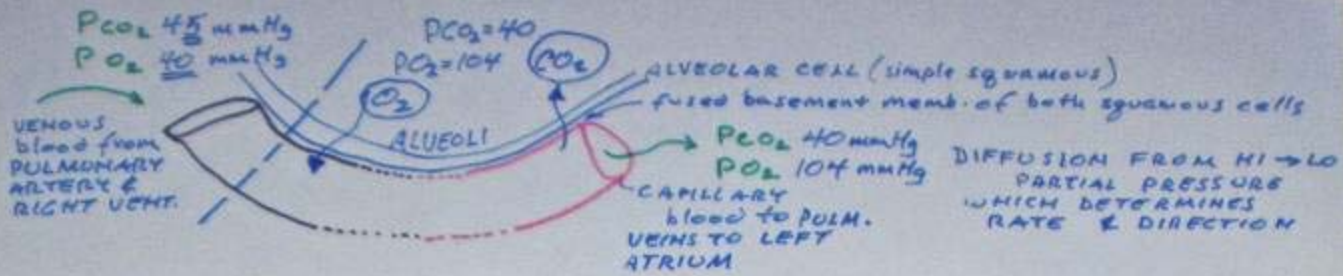 PCO₂ 45 mmHg
PO₂ 40 mmHg
PCO₂=40
PO₂=104
CO₂
O₂
ALVEOLI
ALVEOLAR CELL (simple squamous)
fused basement memb. of both squamous cells
VENOUS
blood from
PULMONARY
ARTERY &
RIGHT VENT.
PCO₂ 40 mmHg
PO₂ 104 mmHg
CAPILLARY
blood to PULM.
VEINS TO LEFT
ATRIUM
DIFFUSION FROM HI → LO
PARTIAL PRESSURE
WHICH DETERMINES
RATE & DIRECTION